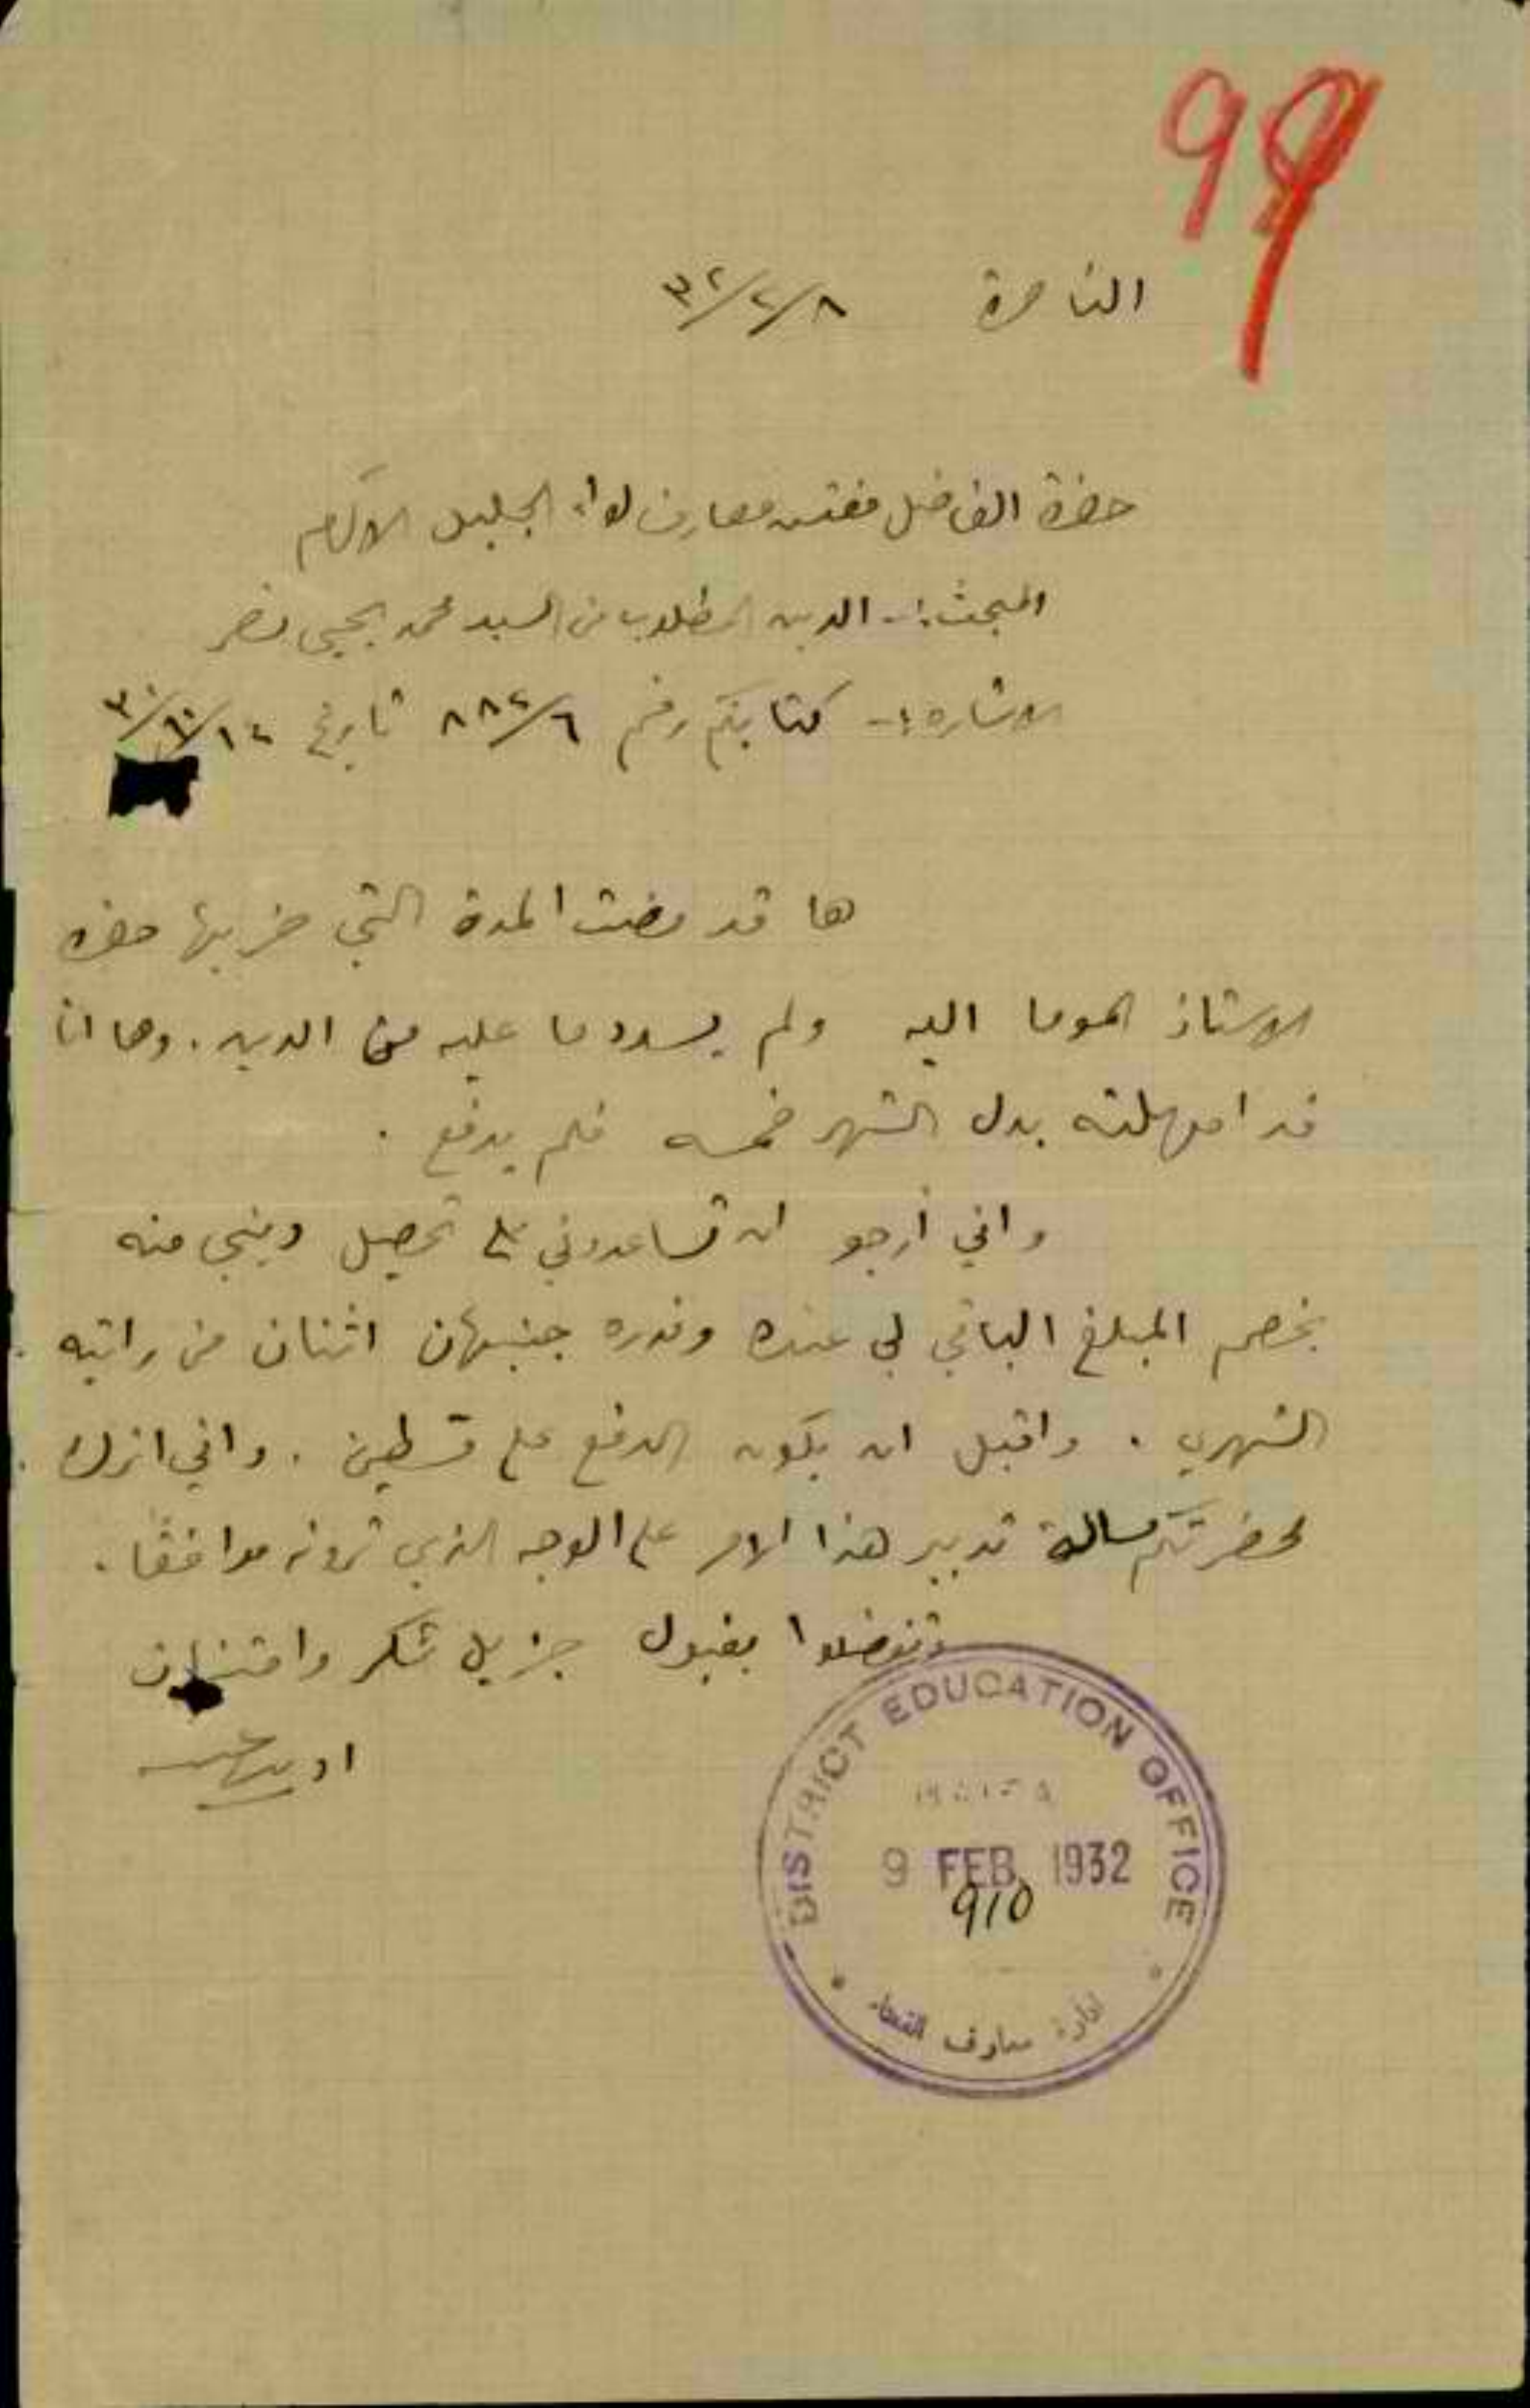 99
الناصرة ٨/٢/٣٢
حضرة الفاضل مفتش معارف لواء الجليل الاكرم
المبحث :- الدين المطلوب من السيد محمد يحيى نصر
الاشاره :- كتابكم رقم ٨٨٢/٦ تاريخ
ها قد مضت المدة التي ضربها حضرة
الاستاذ الموما اليه ولم يسدد ما عليه من الدين . وها انا
قد امهلته بدل الشهر خمسه فلم يدفع .
واني أرجو ان تساعدوني على تحصيل ديني منه
بخصم المبلغ الباقي لي عنده وقدره جنيهان اثنان من راتبه
الشهري . واقبل ان يكون الدفع على قسطين . واني اترك
لحضرتكم مسالة تدبير هذا الامر على الوجه الذي ترونه موافقًا .
وتفضلوا بقبول جزيل شكر وامتنان
DISTRICT EDUCATION OFFICE
HAIFA
9 FEB. 1932
910
ادارة معارف القضاء